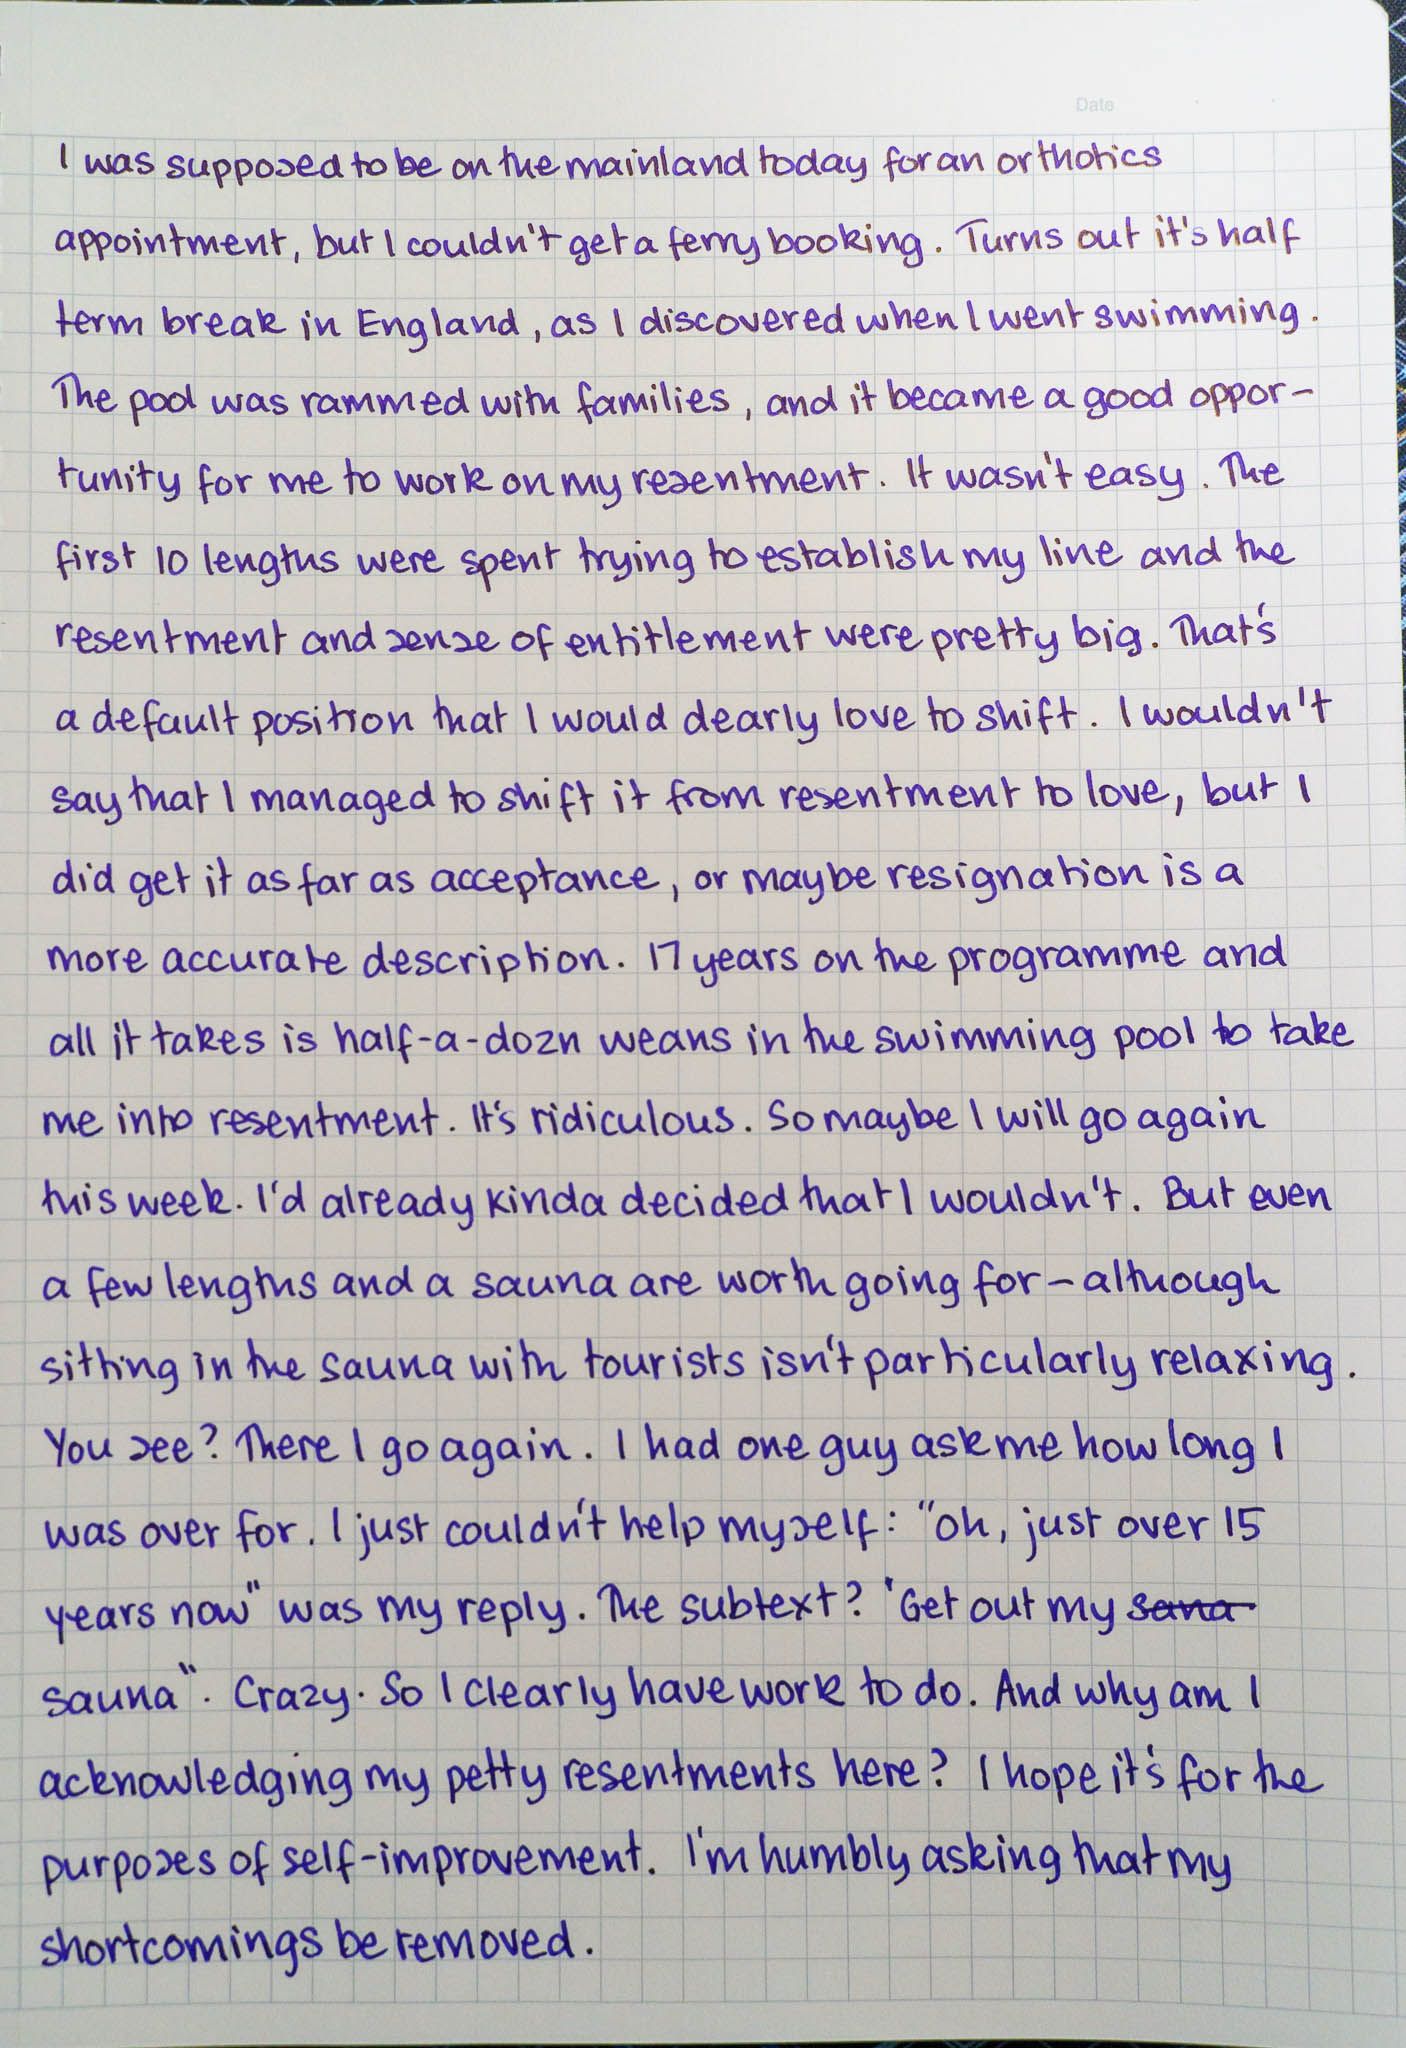 Date
I was supposed to be on the mainland today for an orthotics
appointment, but I couldn't get a ferry booking. Turns out it's half
term break in England, as I discovered when I went swimming.
The pool was rammed with families, and it became a good oppor-
tunity for me to work on my resentment. It wasn't easy. The
first 10 lengths were spent trying to establish my line and the
resentment and sense of entitlement were pretty big. That's
a default position that I would dearly love to shift. I wouldn't
say that I managed to shift it from resentment to love, but I
did get it as far as acceptance, or maybe resignation is a
more accurate description. 17 years on the programme and
all it takes is half-a-dozn weans in the swimming pool to take
me into resentment. It's ridiculous. So maybe I will go again
this week. I'd already kinda decided that I wouldn't. But even
a few lengths and a sauna are worth going for - although
sitting in the sauna with tourists isn't particularly relaxing.
You see? There I go again. I had one guy ask me how long I
was over for. I just couldn't help myself: "oh, just over 15
years now" was my reply. The subtext? 'Get out my sana
sauna". Crazy. So I clearly have work to do. And why am I
acknowledging my petty resentments here? I hope it's for the
purposes of self-improvement. I'm humbly asking that my
shortcomings be removed.